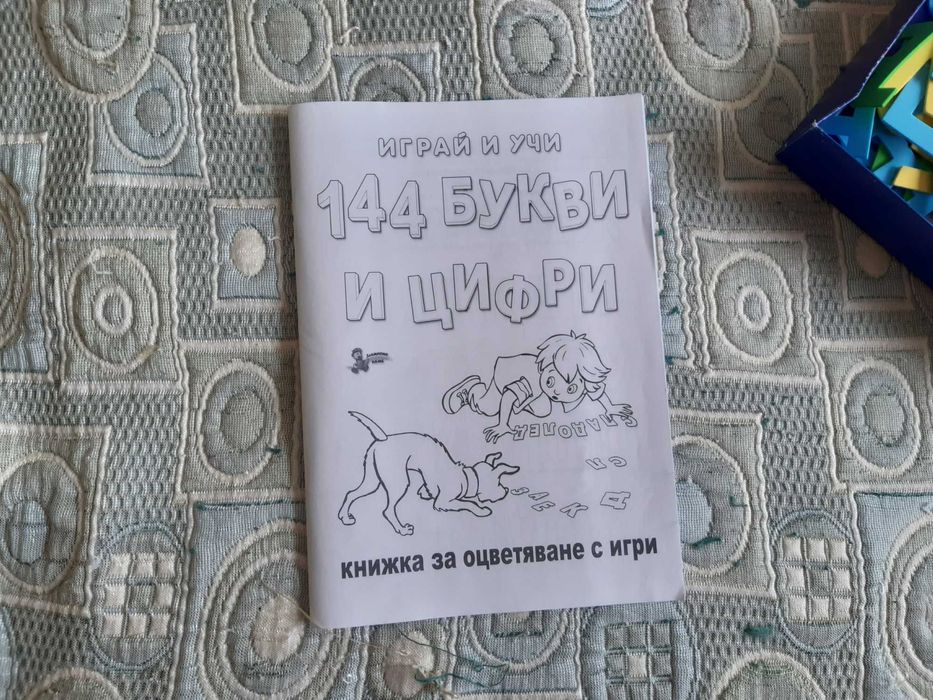 ИГРАЙ И УЧИ
144 БУКВИ
И ЦИФРИ
СЛАДОЛЕД
книжка за оцветяване с игри